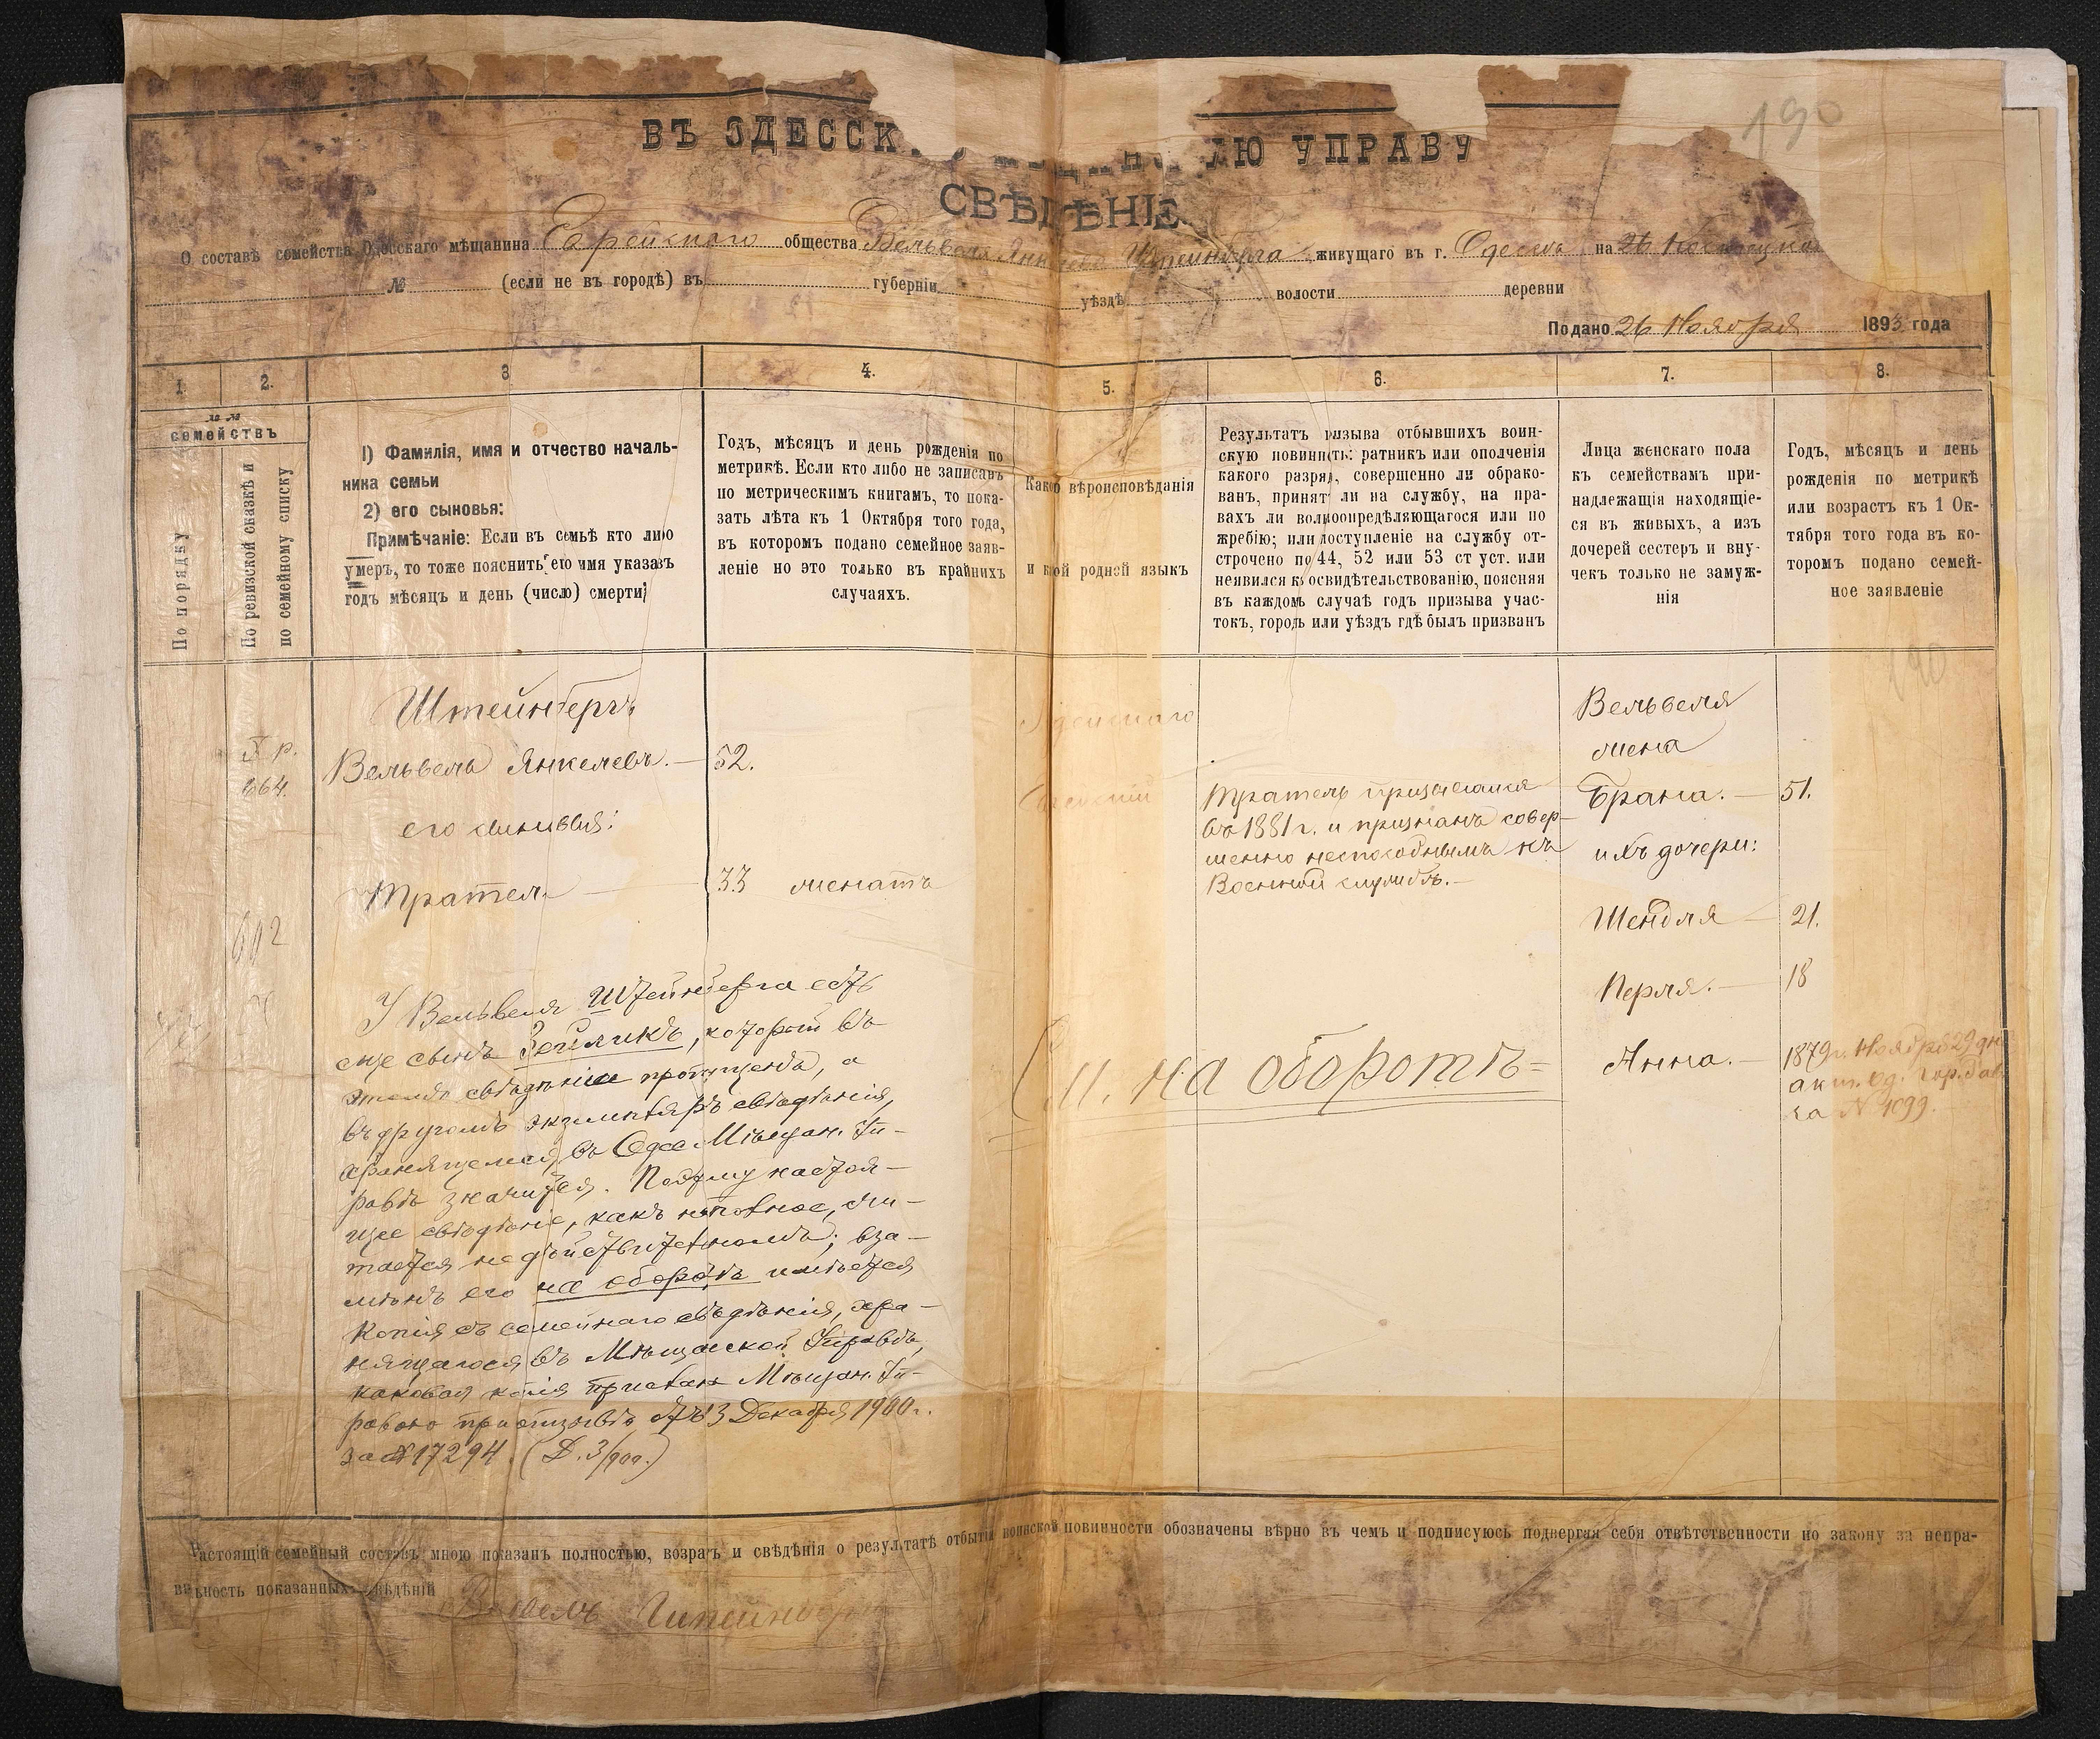 190
ВЪ ОДЕССК УПРАВУ
СВѢДѢНІЕ
О составѣ семейства Одесскаго мѣщанина Еврейскаго общества Вельвеля Янкелева Штейнберга живущаго въ г. Одессѣ на 26
№ (если не въ городѣ) въ губерніи уѣздѣ волости деревни
Подано 26 Ноября 1893 года
1. 2. 3 4. 5. 6. 7. 8.
семействъ
По порядку
По ревизской сказкѣ и
по семейному списку
1) Фамилія, имя и отчество началь-
ника семьи
2) его сыновья:
Примѣчаніе: Если въ семьѣ кто либо
умеръ, то тоже пояснить его имя указавъ
годъ мѣсяцъ и день (число) смерти;
Годъ, мѣсяцъ и день рожденія по
метрикѣ. Если кто либо не записанъ
по метрическимъ книгамъ, то пока-
зать лѣта къ 1 Октября того года,
въ которомъ подано семейное заяв-
леніе но это только въ крайнихъ
случаяхъ.
Какого вѣроисповѣданія
и какой родной языкъ
Результатъ призыва отбывшихъ воин-
скую повинность: ратникъ или ополченія
какого разряда, совершенно ли обрако-
ванъ, принятъ ли на службу, на пра-
вахъ ли вольноопредѣляющагося или по
жребію; или поступленіе на службу от-
строчено по 44, 52 или 53 ст уст. или
неявился къ освидѣтельствованію, поясняя
въ каждомъ случаѣ годъ призыва учас-
токъ, городъ или уѣздъ гдѣ былъ призванъ
Лица женскаго пола
къ семействамъ при-
надлежащія находящіе-
ся въ живыхъ, а изъ
дочерей сестеръ и вну-
чекъ только не замуж-
нія
Годъ, мѣсяцъ и день
рожденія по метрикѣ
или возрастъ къ 1 Ок-
тября того года въ ко-
торомъ подано семей-
ное заявленіе
190
X р.
664.
602
Штейнбергъ
Вельвель Янкелевъ. — 52.
его сыновья:
Тратель — 33 женатъ
Тратель призывался
въ 1881 г. и признанъ совер-
шенно неспособнымъ къ
Военной службѣ. —
Вельвеля
жена
Брана. — 51.
ихъ дочери:
Шендля — 21.
Перля. — 18
Анна. — 1879 г. Ноября 29 дня
акт. Од. Гор. Рав.
за № 1099.
См. на оборотѣ =
У Вельвеля Штейнберга есть
еще сынъ Зейликъ, который въ
этомъ свѣдѣніи пропущенъ, а
въ другомъ экземплярѣ свѣдѣнія,
хранящемся въ Одес. Мѣщан. Уп-
равѣ значится. Поэтому настоя-
щее свѣдѣніе, какъ неполное, счи-
тается недѣйствительнымъ; вза-
мѣнъ его на оборотѣ имѣется
Копія съ семейнаго свѣдѣнія, хра-
нящагося въ Мѣщанской Управѣ,
каковая копія прислана Мѣщан. Уп-
равою при отзывѣ отъ 13 Декабря 1900 г.
за № 17294. (Д. 3/900.)
Настоящій семейный составъ мною показанъ полностью, возрастъ и свѣдѣнія о результатѣ отбытія воинской повинности обозначены вѣрно въ чемъ и подписуюсь подвергая себя отвѣтственности по закону за непра-
вильность показанныхъ свѣдѣній Вельвель Штейнбергъ